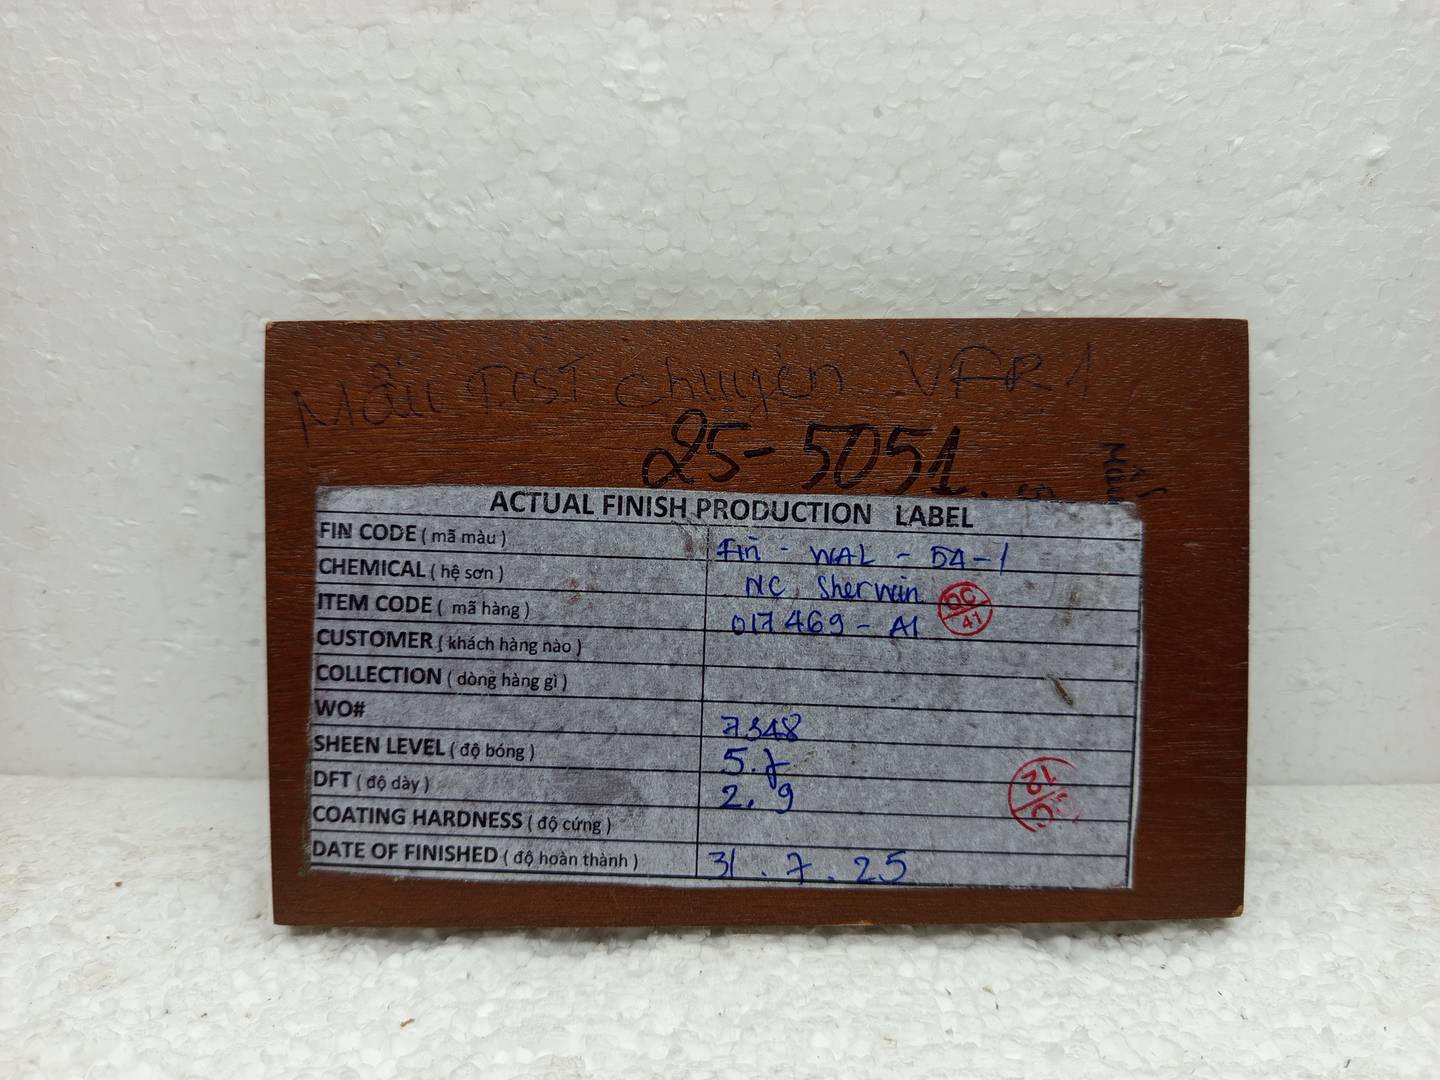 Mẫu TEST chuyển VFR1
25-5051.
Mẫu
ACTUAL FINISH PRODUCTION LABEL
FIN CODE ( mã màu ) Fin - WAL - 54-1
CHEMICAL ( hệ sơn ) NC Sherwin
QC
41
ITEM CODE ( mã hàng ) 017469 - A1
CUSTOMER ( khách hàng nào )
COLLECTION ( dòng hàng gì )
WO# 7348
SHEEN LEVEL ( độ bóng ) 5.7
DFT ( độ dày ) 2.9
QC
12
COATING HARDNESS ( độ cứng )
DATE OF FINISHED ( độ hoàn thành ) 31.7.25